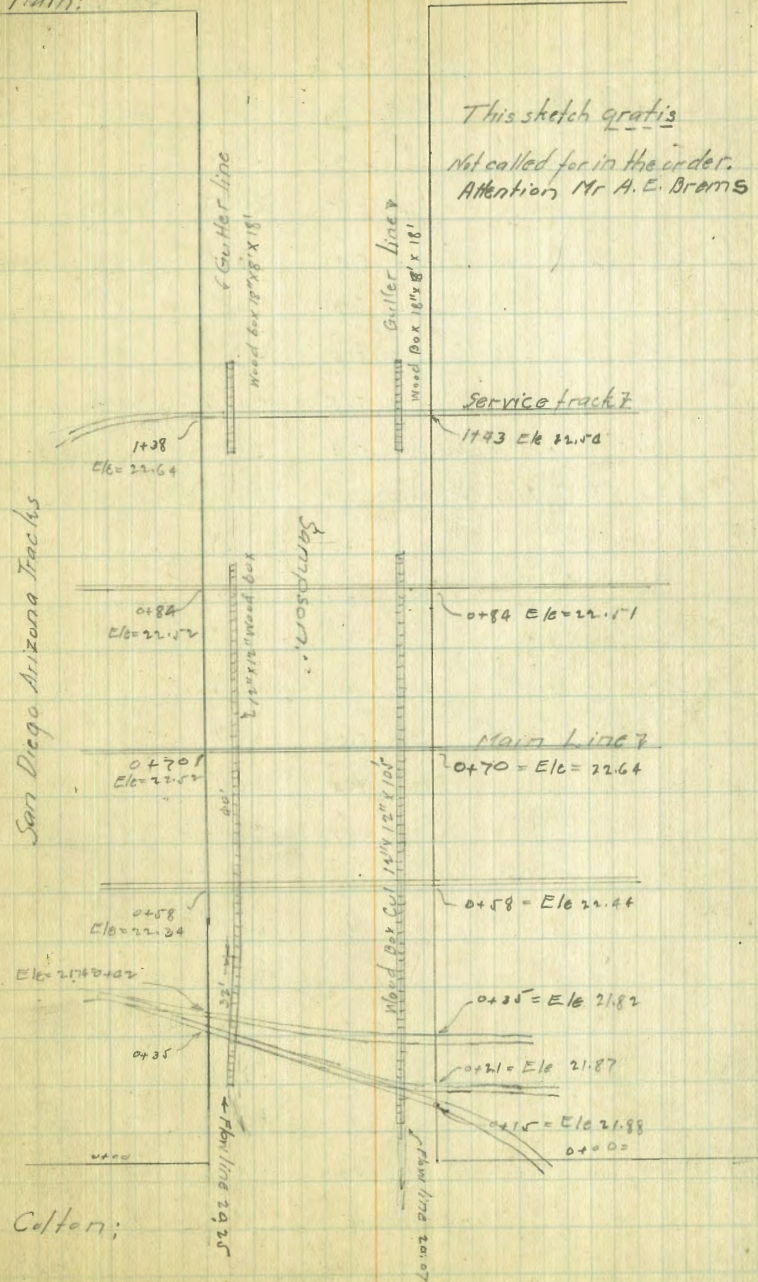 Main:
This sketch gratis
Not called for in the order.
Attention Mr A. E. Brems
Gutter line
Wood box 18"x8'x18'
Gutter Line
Wood Box 18"x8'x18'
Service track
1+38
Ele=22.64
1+43 Ele 22.54
San Diego Arizona Tracks
Sampson.
12"x12" Wood box
0+84
Ele=22.52
0+84 Ele=22.51
Main Line
0+70
Ele=22.52
0+70 = Ele= 22.64
60'
Wood Box Cul 12"x12"x105'
0+58
Ele=22.34
0+58 = Ele 22.44
32'
0+35
0+35 = Ele 21.82
0+21 = Ele 21.87
0+15 = Ele 21.88
0+00
0+00=
Flow line 20.25
Flow line 20.07
Colton;